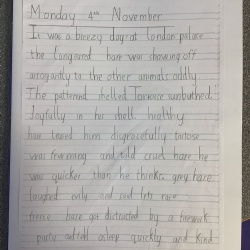 Monday 4th November
It was a breezy day at London palace
the long eared hare was showing off
arrogantly to the other animals oddly
The patterned shelled Torrence unbothered.
Joyfully in his shell healthy
hare teased him disgracefully tortoise
was few ening and told cruel hare he
was quicker than he thinks grey hare
laughed evily and said lets race
hare got distracted by a firework
party and fell asleep quickly and kind